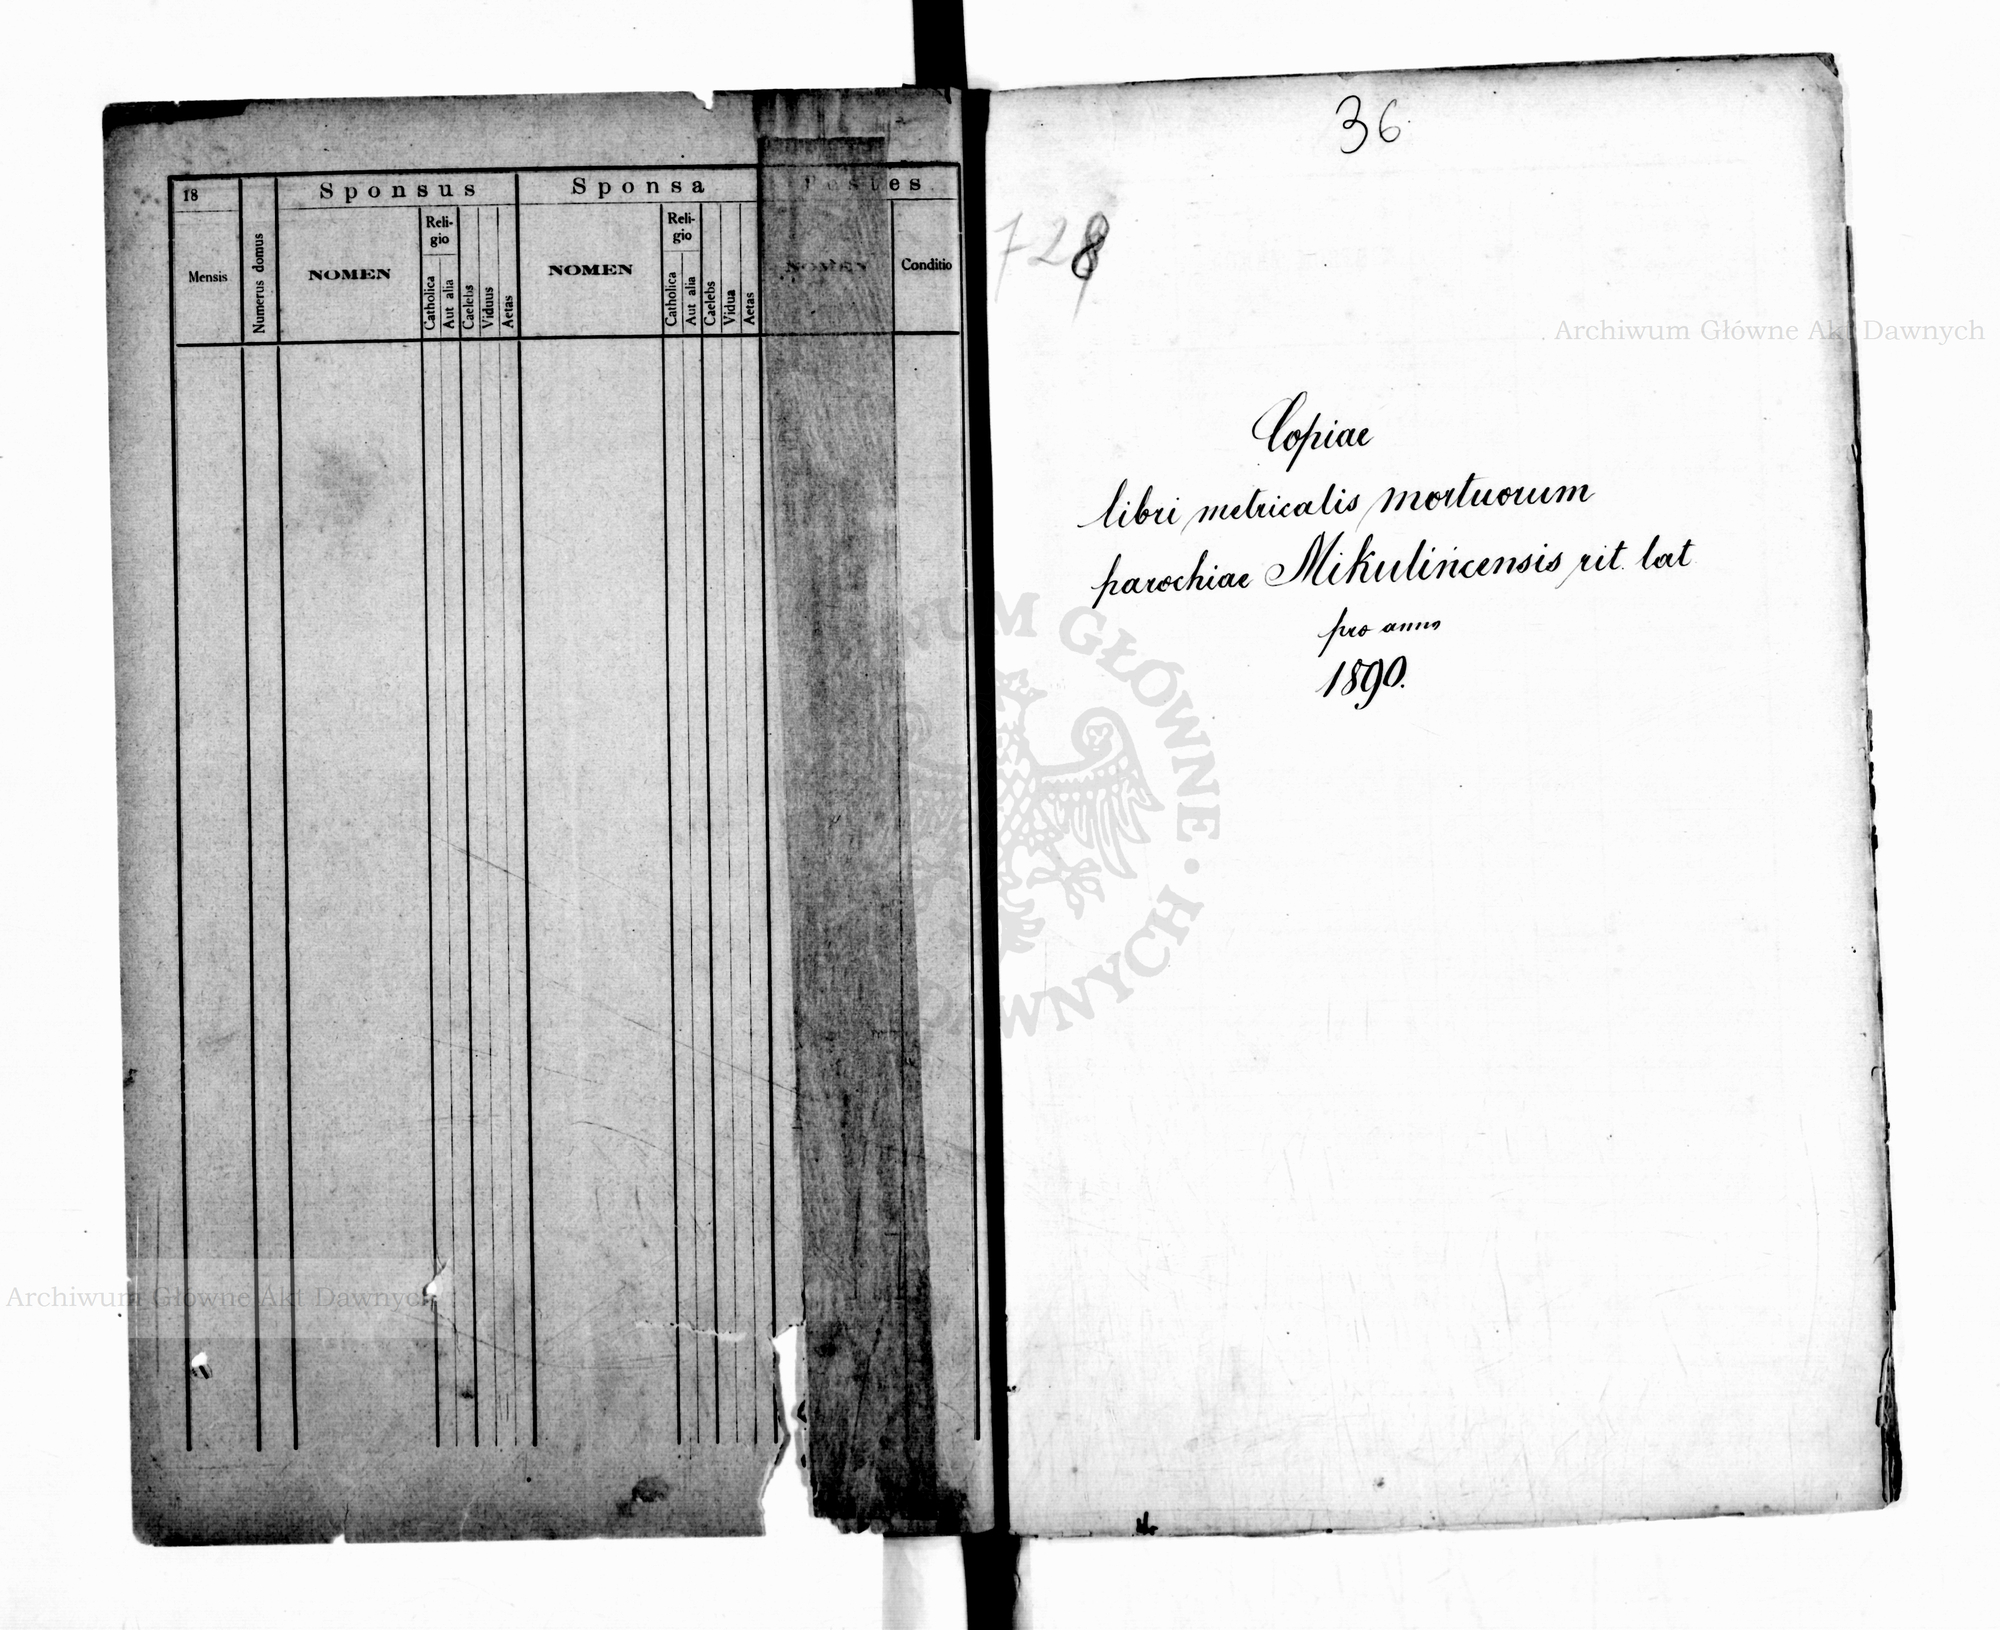 18
Mensis
Numerus domus
Sponsus
NOMEN
Reli-
gio
Catholica
Aut alia
Caelebs
Viduus
Aetas
Sponsa
NOMEN
Reli-
gio
Catholica
Aut alia
Caelebs
Vidua
Aetas
Testes
NOMEN
Conditio
Archiwum Główne Akt Dawnych
36
728
Archiwum Główne Akt Dawnych
Copiae
libri metricalis mortuorum
parochiae Mikulińcensis rit. lat
pro anno
1890.
NUM GŁÓWNE · WNYCH